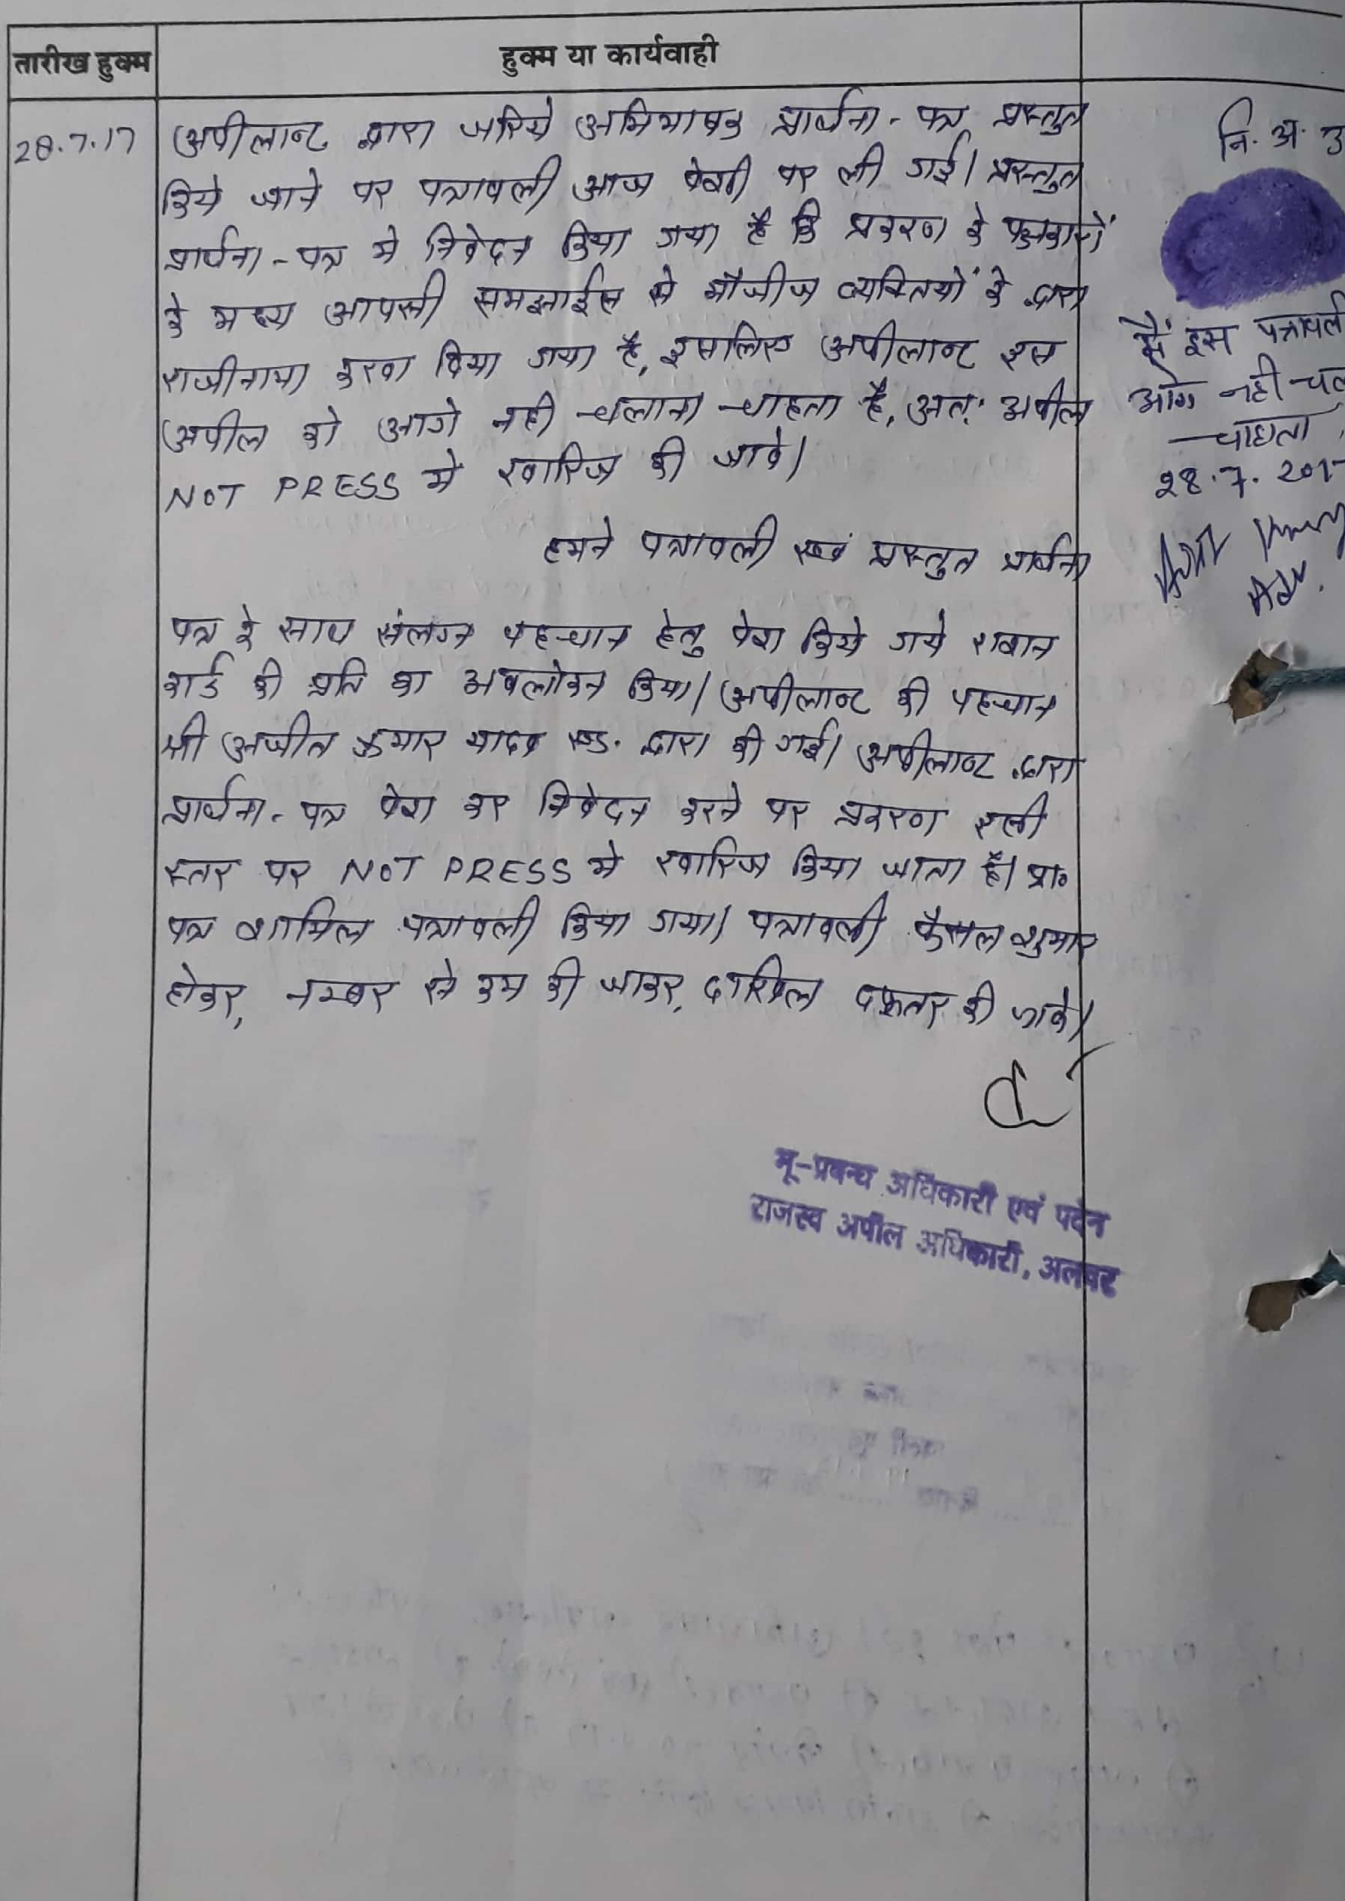 तारीख हुक्म
हुक्म या कार्यवाही
28.7.17
अपीलान्ट द्वारा जरिये अभिभाषक प्रार्थना-पत्र प्रस्तुत
किये जाने पर पत्रावली आज पेशी पर ली गई। प्रस्तुत
प्रार्थना-पत्र मे निवेदन किया गया है कि प्रकरण के पक्षकारों
के मध्य आपसी समझाईस से मौजीज व्यक्तियों के द्वारा
राजीनामा करवा दिया गया है, इसलिए अपीलान्ट इस
अपील को आगे नही चलाना चाहता है, अतः अपील
NOT PRESS मे खारिज की जावे।
हमने पत्रावली एवं प्रस्तुत प्रार्थना
पत्र के साथ संलग्न पहचान हेतु पेश किये गये राशन
कार्ड की प्रति का अवलोकन किया। अपीलान्ट की पहचान
श्री अजीत कुमार यादव एड. द्वारा की गई। अपीलान्ट द्वारा
प्रार्थना-पत्र पेश कर निवेदन करने पर प्रकरण इसी
स्तर पर NOT PRESS मे खारिज किया जाता है। प्रा०
पत्र शामिल पत्रावली किया गया। पत्रावली फैसल शुमार
होकर, नम्बर से कम की जाकर, दाखिल दफ्तर की जावे।
भू-प्रबन्ध अधिकारी एवं पदेन
राजस्व अपील अधिकारी, अलवर
नि. अ.
मैं इस पत्रावली
आगे नही चल
चाहता
28.7.201
Adv.